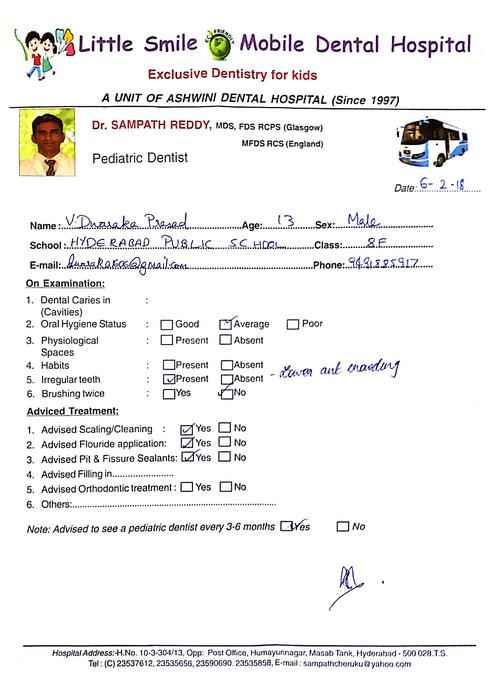 Little Smile Mobile Dental Hospital
ECO FRIENDLY
Exclusive Dentistry for kids
A UNIT OF ASHWINI DENTAL HOSPITAL (Since 1997)
Dr. SAMPATH REDDY, MDS, FDS RCPS (Glasgow)
MFDS RCS (England)
Pediatric Dentist
Date: 6-2-18
Name: V. Dwaraka Prasad Age: 13 Sex: Male
School: HYDERABAD PUBLIC SCHOOL Class: 8F
E-mail: @gmail.com Phone:
On Examination:
1. Dental Caries in :
(Cavities)
2. Oral Hygiene Status : Good Average Poor
3. Physiological : Present Absent
Spaces
4. Habits : Present Absent
5. Irregular teeth : Present Absent - Lower ant crowding
6. Brushing twice : Yes No
Adviced Treatment:
1. Advised Scaling/Cleaning : Yes No
2. Advised Flouride application: Yes No
3. Advised Pit & Fissure Sealants: Yes No
4. Advised Filling in
5. Advised Orthodontic treatment : Yes No
6. Others:
Note: Advised to see a pediatric dentist every 3-6 months Yes No
Hospital Address:-H.No. 10-3-304/13, Opp: Post Office, Humayunnagar, Masab Tank, Hyderabad - 500 028.T.S.
Tel : (C) 23537612, 23535656, 23590690. 23535858, E-mail : sampathcheruku@yahoo.com